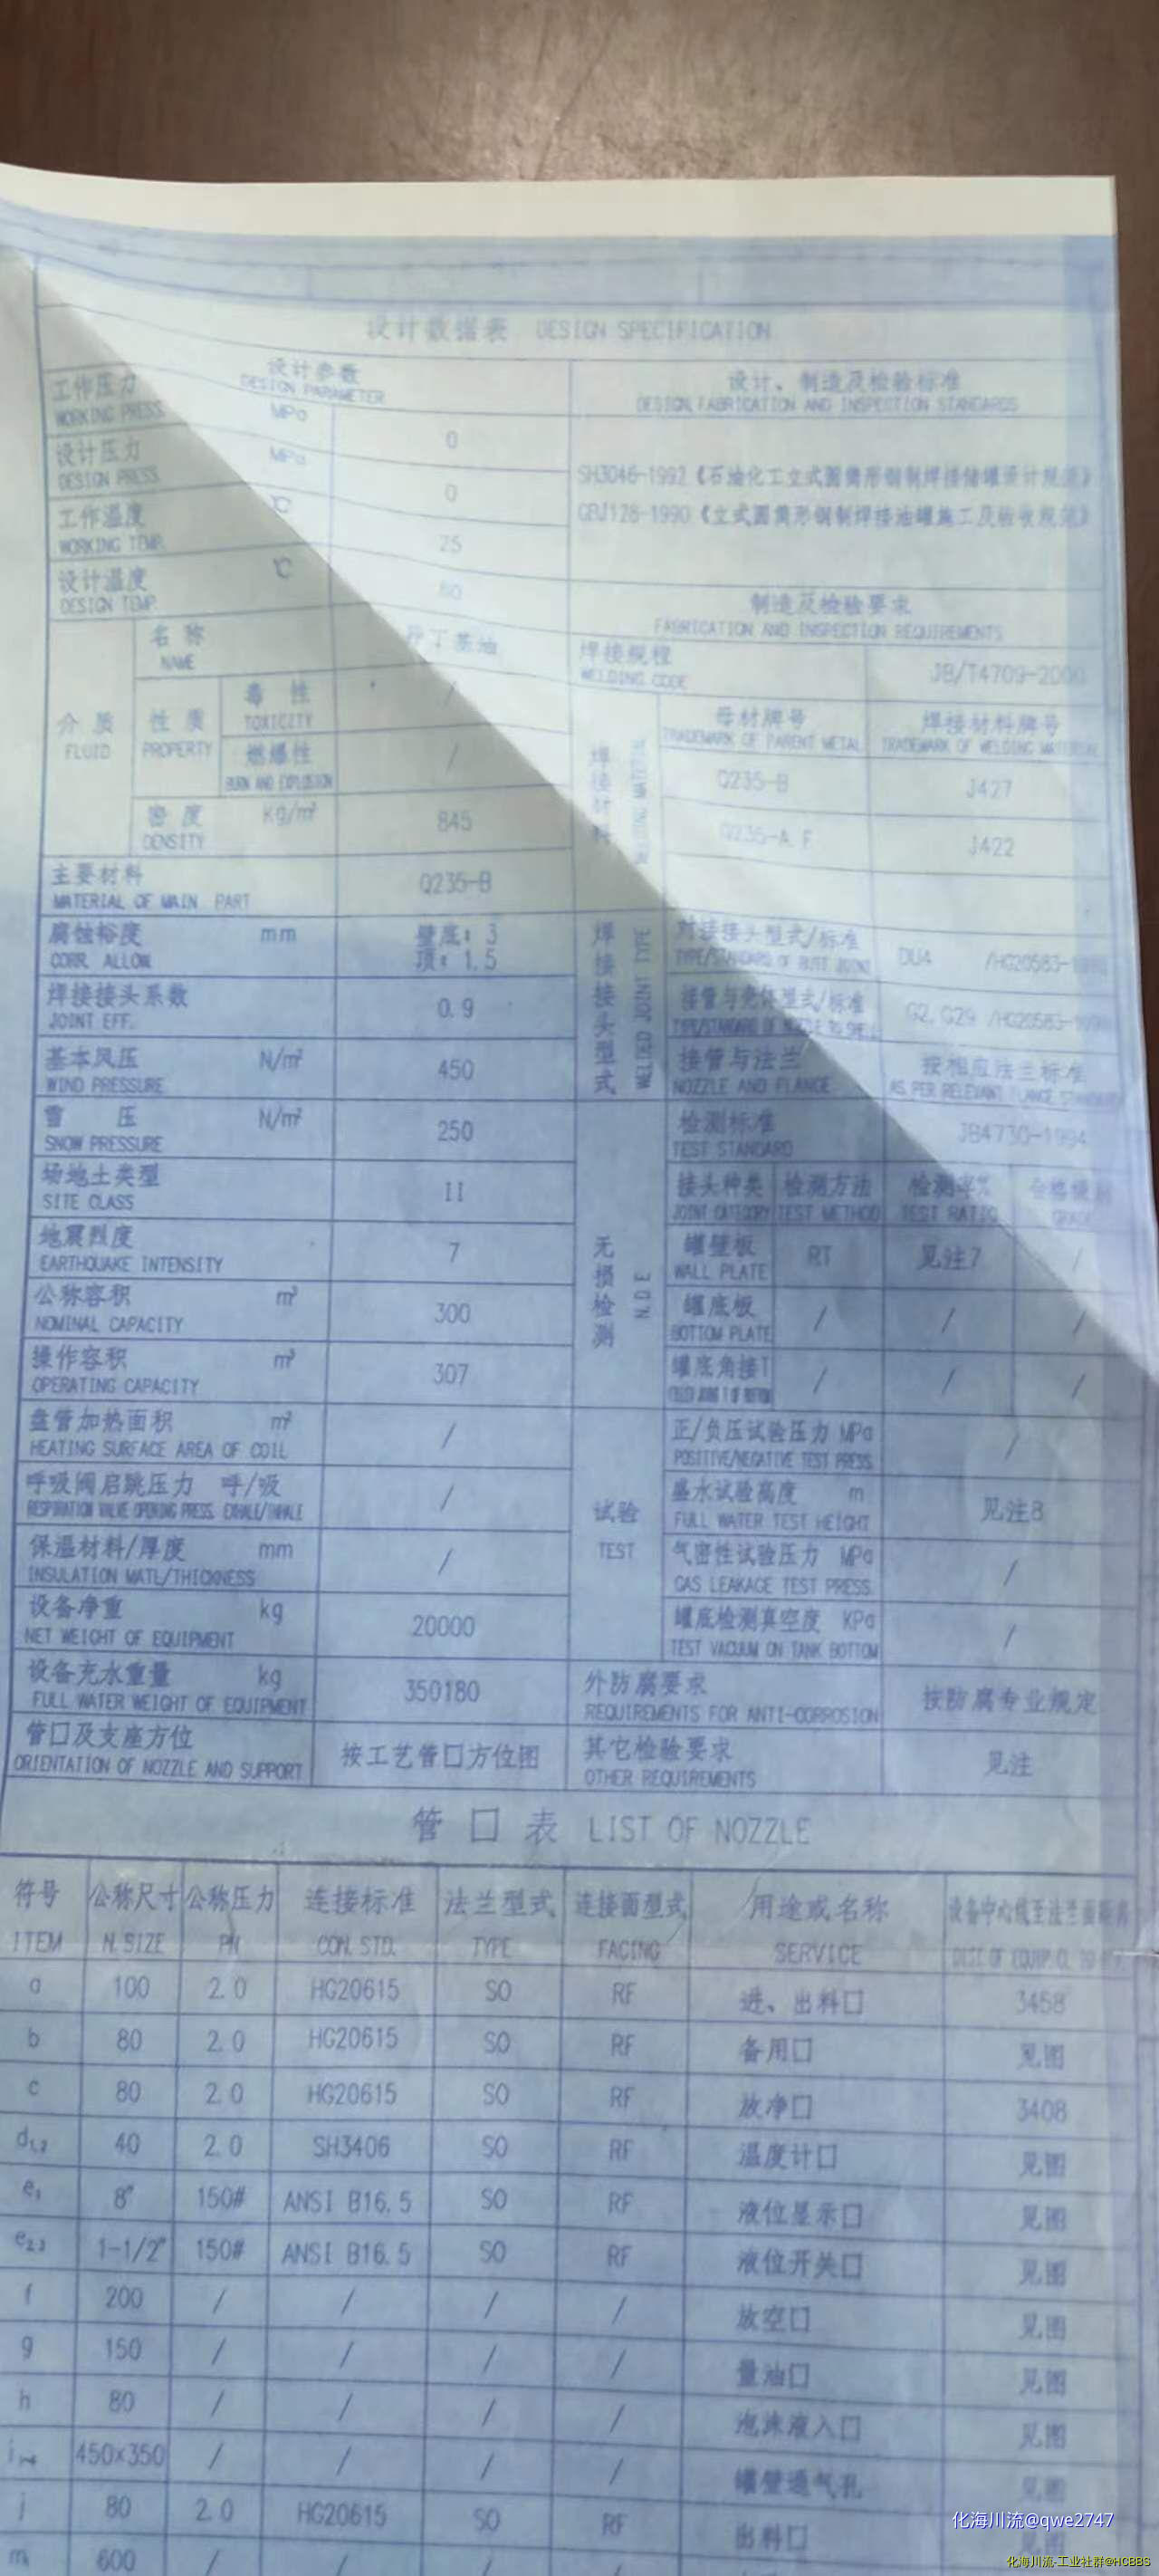 设计数据表 DESIGN SPECIFICATION
设计参数
DESIGN PARAMETER
设计、制造及检验标准
DESIGN, FABRICATION AND INSPECTION STANDARDS
工作压力 MPa 0
WORKING PRESS.
设计压力 MPa 0
DESIGN PRESS.
SH3046-1992《石油化工立式圆筒形钢制焊接储罐设计规范》
GBJ128-1990《立式圆筒形钢制焊接油罐施工及验收规范》
工作温度 ℃ 25
WORKING TEMP.
设计温度 ℃ 60
DESIGN TEMP.
制造及检验要求
FABRICATION AND INSPECTION REQUIREMENTS
介质
FLUID
名称
NAME
焊接规程
WELDING CODE
JB/T4709-2000
性质
PROPERTY
毒性 /
TOXICITY
燃爆性 /
BURN AND EXPLOSION
密度 Kg/m³ 845
DENSITY
焊接材料
WELDING MATERIAL
母材牌号
TRADEMARK OF PARENT METAL
焊接材料牌号
TRADEMARK OF WELDING MATERIAL
Q235-B J427
Q235-A.F J422
主要材料 Q235-B
MATERIAL OF MAIN PART
腐蚀裕度 mm 壁底: 3
CORR. ALLOW 顶: 1.5
焊接接头系数 0.9
JOINT EFF.
基本风压 N/m² 450
WIND PRESSURE
焊接接头型式
WELDED JOINT TYPE
对接接头型式/标准 DU4
TYPE/STANDARD OF BUTT JOINT
接管与壳体型式/标准 G2, G29
TYPE/STANDARD OF NOZZLE TO SHELL
接管与法兰 按相应法兰标准
NOZZLE AND FLANGE AS PER RELEVANT FLANGE STANDARD
雪压 N/m² 250
SNOW PRESSURE
场地土类型 II
SITE CLASS
地震烈度 7
EARTHQUAKE INTENSITY
公称容积 m³ 300
NOMINAL CAPACITY
操作容积 m³ 307
OPERATING CAPACITY
无损检测
N.D.E
检测标准 JB4730-1994
TEST STANDARD
接头种类 检测方法 检测率% 合格级别
JOINT CATEGORY TEST METHOD TEST RATIO GRADE
罐壁板 RT 见注7 /
WALL PLATE
罐底板 / / /
BOTTOM PLATE
罐底角接T / / /
盘管加热面积 m² /
HEATING SURFACE AREA OF COIL
呼吸阀启跳压力 呼/吸 /
RESPIRATION VALVE OPENING PRESS. EXHALE/INHALE
保温材料/厚度 mm /
INSULATION MATL/THICKNESS
设备净重 kg 20000
NET WEIGHT OF EQUIPMENT
试验
TEST
正/负压试验压力 MPa /
POSITIVE/NEGATIVE TEST PRESS.
盛水试验高度 m 见注8
FULL WATER TEST HEIGHT
气密性试验压力 MPa /
GAS LEAKAGE TEST PRESS.
罐底检测真空度 KPa /
TEST VACUUM ON TANK BOTTOM
设备充水重量 kg 350180
FULL WATER WEIGHT OF EQUIPMENT
外防腐要求 按防腐专业规定
REQUIREMENTS FOR ANTI-CORROSION
管口及支座方位 按工艺管口方位图
ORIENTATION OF NOZZLE AND SUPPORT
其它检验要求 见注
OTHER REQUIREMENTS
管口表 LIST OF NOZZLE
符号 公称尺寸 公称压力 连接标准 法兰型式 连接面型式 用途或名称 设备中心线至法兰面距离
ITEM N.SIZE PN CON.STD. TYPE FACING SERVICE
a 100 2.0 HG20615 SO RF 进、出料口 3458
b 80 2.0 HG20615 SO RF 备用口 见图
c 80 2.0 HG20615 SO RF 放净口 3408
d1,2 40 2.0 SH3406 SO RF 温度计口 见图
e1 8" 150# ANSI B16.5 SO RF 液位显示口 见图
e2,3 1-1/2" 150# ANSI B16.5 SO RF 液位开关口 见图
f 200 / / / / 放空口 见图
g 150 / / / / 量油口 见图
h 80 / / / / 泡沫液入口 见图
450×350 / / / / 罐壁通气孔 见图
j 80 2.0 HG20615 SO RF 出料口
m 600 / / / /
化海川流@qwe2747
化海川流-工业社群@HCBBS